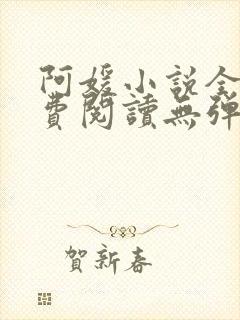 阿媛小说全
費閱讀無彈
賀新春